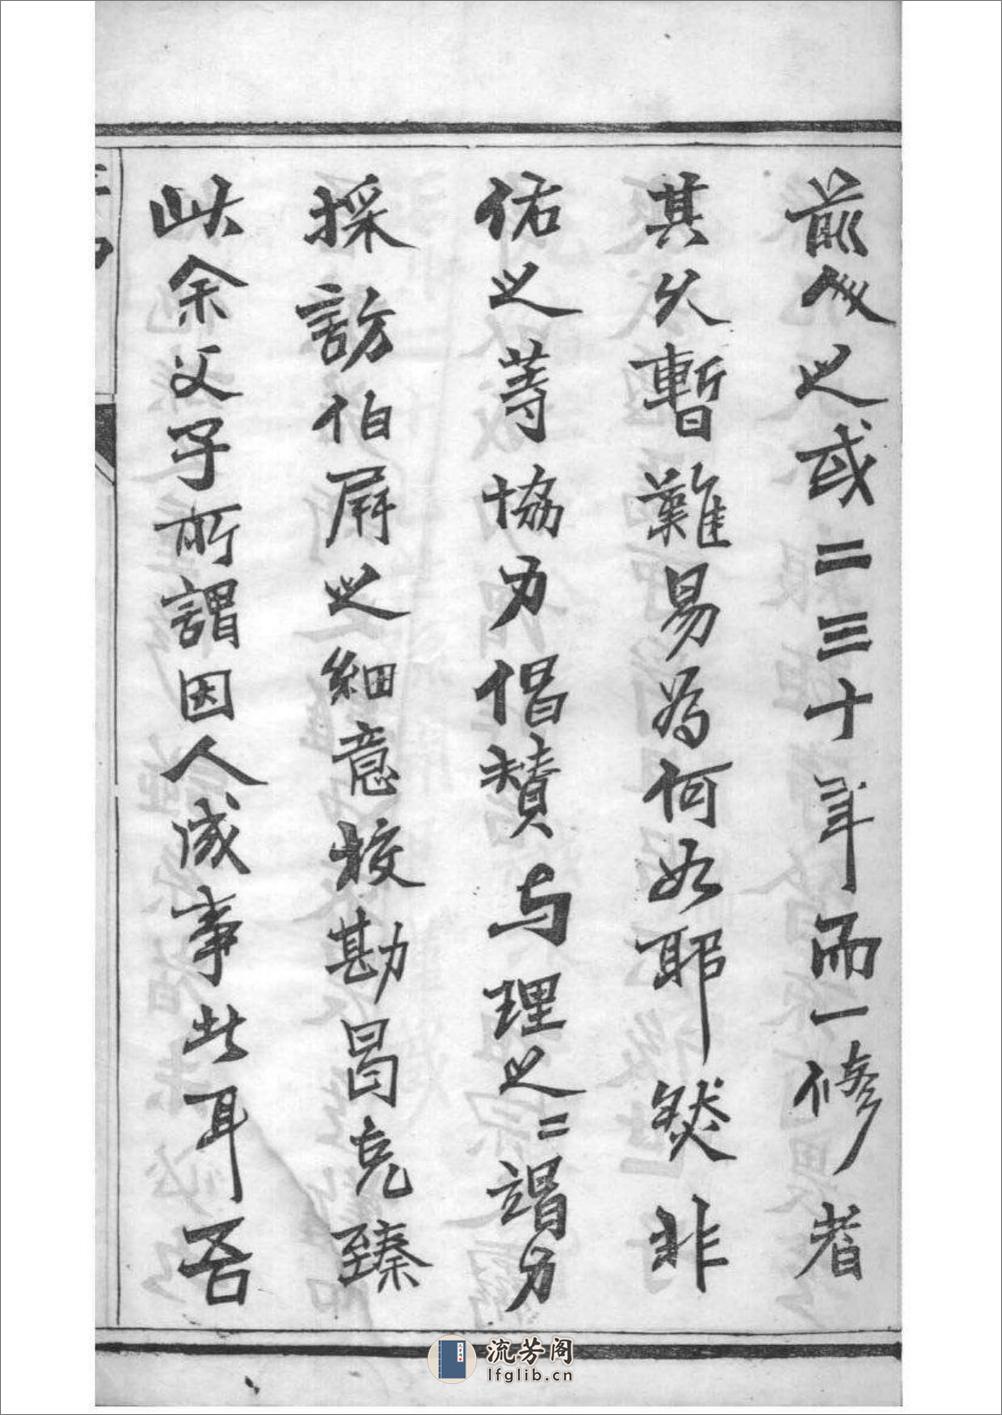 前人之或二三十年而一修者
其久暫難易為何如耶然非
佑之等協力倡賛与理之二謂力
採訪伯屏之細意校勘曷克臻
此余父子所謂因人成事此耳吾
流芳阁
lfglib.cn